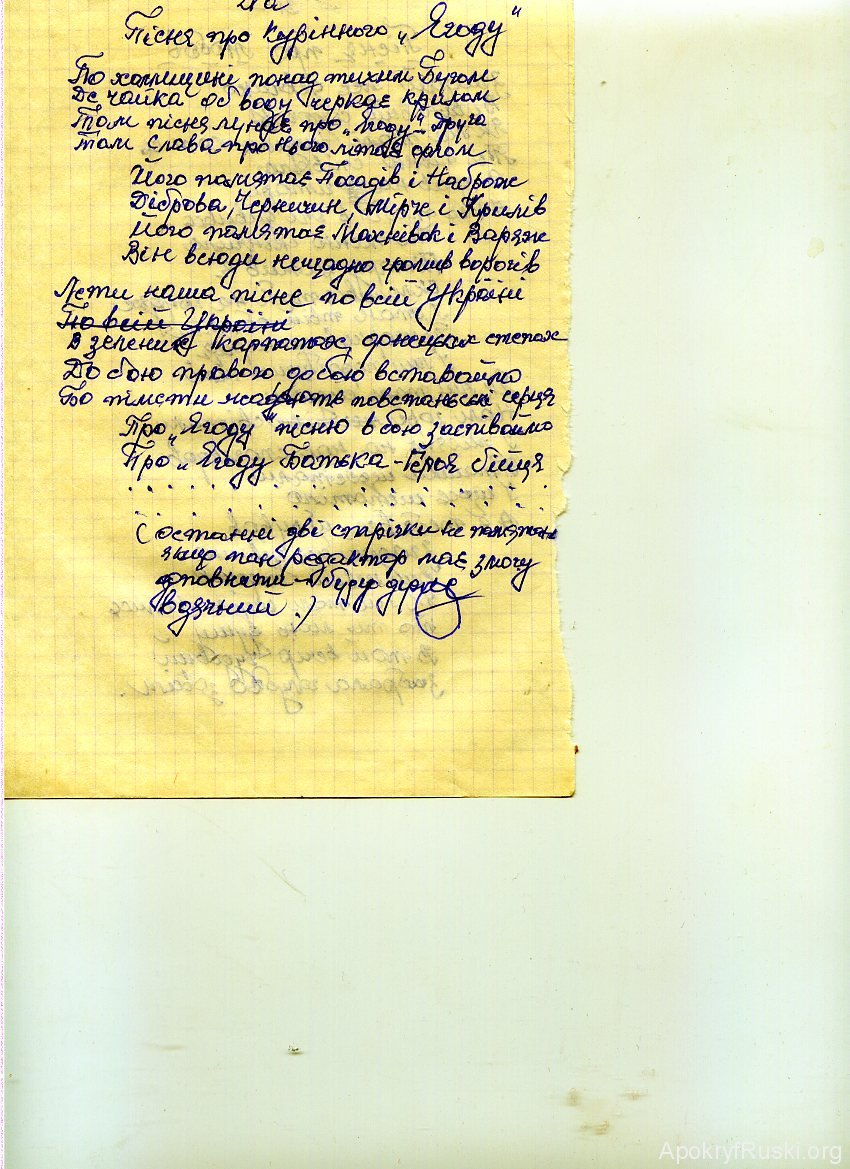 Пісня про курінного „Ягоду"
По холмщині понад тихим Бугом
Де чайка об воду черкає крилом
Там пісня лунає про „Ягоду"-друга
Там слава про нього літає орлом
Його памятає Посадів і Наброж
Діброва, Черничин, Мірче і Крилів
Його памятає Махнівок і Варяж
Він всюди нещадно громив ворогів
Лети наша пісне по всій Україні
По всій Україні
В зелених Карпатах, донецких степах
До бою правого до бою вставаймо
Бо пімсти жадають повстанські серця
Про „Ягоду" пісню в бою заспіваймо
Про „Ягоду Батька-Героя бійця
(останні дві стрічки не памятаю
якщо пан редактор має змогу
доповнити - буду дуже
вдячний.)
ApokryfRuski.org